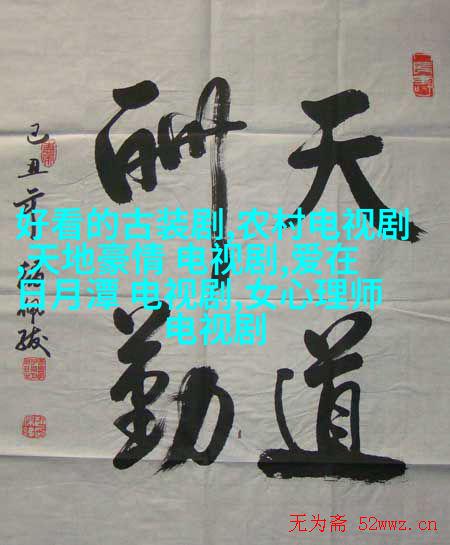 天道
酬勤
己丑
好看的古装剧,农村电视剧
,天地豪情 电视剧,爱在
日月潭 电视剧,女心理师
电视剧
无为斋 52wwz.cn